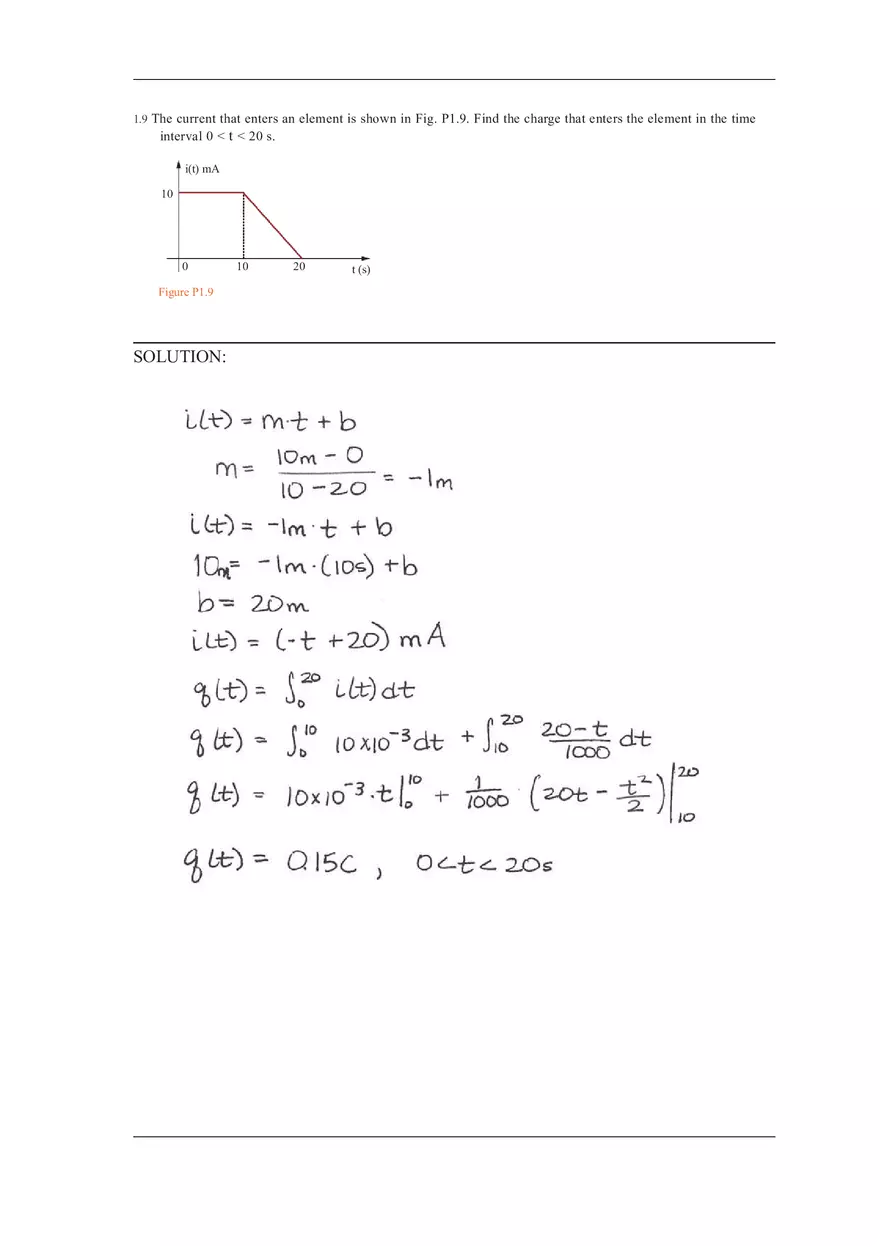 1.9 The current that enters an element is shown in Fig. P1.9. Find the charge that enters the element in the time
interval 0 < t < 20 s.
i(t) mA
10
0 10 20 t (s)
Figure P1.9
SOLUTION:
i(t) = m·t + b
m = (10m - 0)/(10 - 20) = -1m
i(t) = -1m·t + b
10m = -1m·(10s) + b
b = 20m
i(t) = (-t + 20) mA
q(t) = ∫₀²⁰ i(t) dt
q(t) = ∫₀¹⁰ 10x10⁻³ dt + ∫₁₀²⁰ (20-t)/1000 dt
q(t) = 10x10⁻³·t|₀¹⁰ + 1/1000 · (20t - t²/2)|₁₀²⁰
q(t) = 0.15C, 0<t<20s